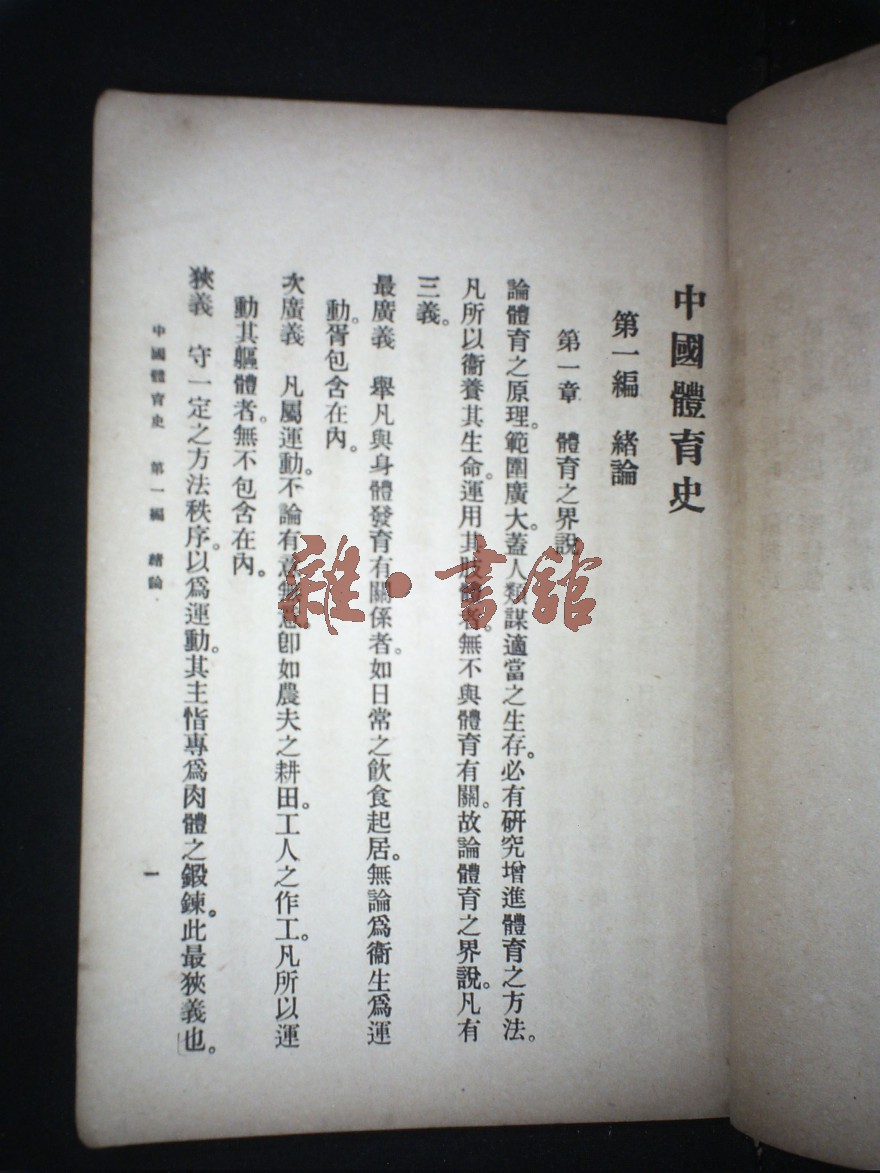 中國體育史
第一編　緒論
第一章　體育之界說
論體育之原理。範圍廣大。蓋人類謀適當之生存。必有研究增進體育之方法。
凡所以衞養其生命。運用其肢體者。無不與體育有關。故論體育之界說。凡有
三義。
最廣義　舉凡與身體發育有關係者。如日常之飲食起居。無論爲衞生爲運
動。胥包含在內。
次廣義　凡屬運動。不論有意無意。卽如農夫之耕田。工人之作工。凡所以運
動其軀體者。無不包含在內。
狹義　守一定之方法秩序。以爲運動。其主恉專爲肉體之鍛鍊。此最狹義也。
中國體育史　第一編　緒論
一
雜·書館